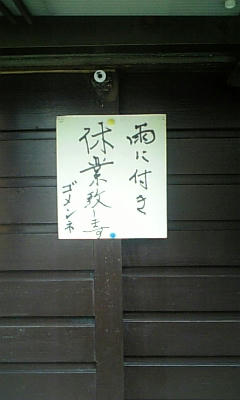 雨に付き
休業致します
ゴメンネ